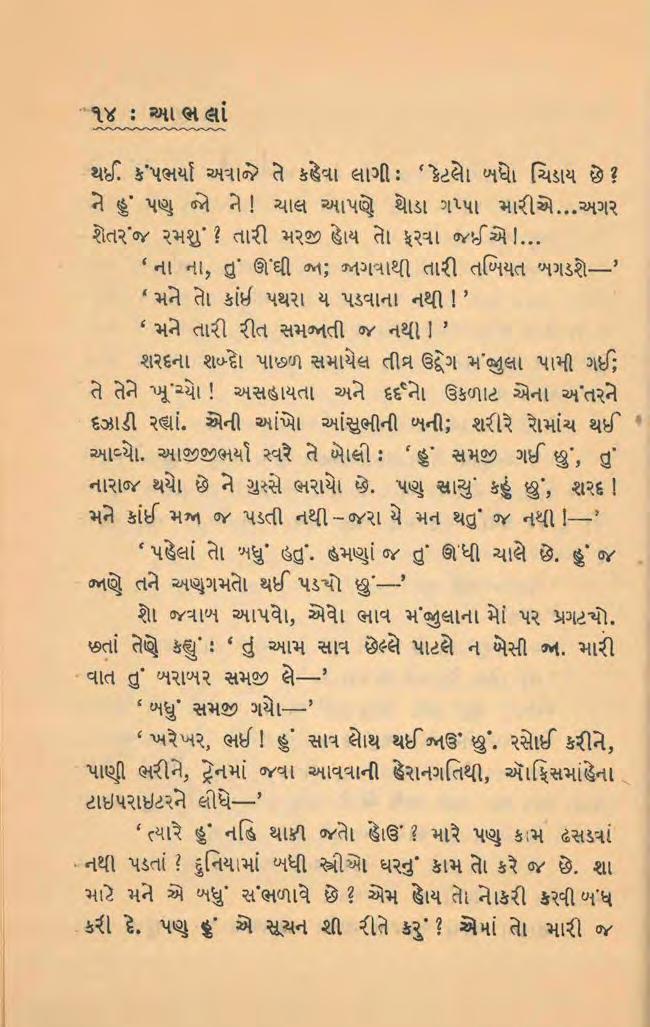 ૧૪ : આભલાં
થઈ. કંપભર્યા અવાજે તે કહેવા લાગી: ‘કેટલો બધો ચિડાય છે?
ને હું પણ જો ને! ચાલ આપણે થોડા ગપ્પા મારીએ...અગર
શેતરંજ રમશું? તારી મરજી હોય તો ફરવા જઈએ!...
‘ના ના, તું ઊંઘી જા; જાગવાથી તારી તબિયત બગડશે—’
‘મને તો કાંઈ પથરા ય પડવાના નથી!’
‘મને તારી રીત સમજાતી જ નથી!’
શરદના શબ્દો પાછળ સમાયેલ તીવ્ર ઉદ્વેગ મંજુલા પામી ગઈ;
તે તેને ખૂંચ્યો! અસહાયતા અને દર્દનો ઉકળાટ એના અંતરને
દઝાડી રહ્યાં. એની આંખો આંસુભીની બની; શરીરે રોમાંચ થઈ
આવ્યો. આજીજીભર્યા સ્વરે તે બોલી: ‘હું સમજી ગઈ છું, તું
નારાજ થયો છે ને ગુસ્સે ભરાયો છે. પણ સાચું કહું છું, શરદ!
મને કાંઈ મજા જ પડતી નથી–જરા યે મન થતું જ નથી!—’
‘પહેલાં તો બધું હતું. હમણાં જ તું ઊંધી ચાલે છે. હું જ
જાણે તને અણગમતો થઈ પડયો છું—’
શો જવાબ આપવો, એવો ભાવ મંજુલાના મોં પર પ્રગટયો.
છતાં તેણે કહ્યું: ‘તું આમ સાવ છેલ્લે પાટલે ન બેસી જા. મારી
વાત તું બરાબર સમજી લે—’
‘બધું સમજી ગયો—’
‘ખરેખર, ભઈ! હું સાવ લોથ થઈ જાઉં છું. રસોઈ કરીને,
પાણી ભરીને, ટ્રેનમાં જવા આવવાની હેરાનગતિથી, ઑફિસમાંહેના
ટાઇપરાઇટરને લીધે—’
‘ત્યારે હું નહિ થાકી જતો હોઉં? મારે પણ કામ ઢસડવાં
નથી પડતાં? દુનિયામાં બધી સ્ત્રીઓ ઘરનું કામ તો કરે જ છે. શા
માટે મને એ બધું સંભળાવે છે? એમ હોય તો નોકરી કરવી બંધ
કરી દે. પણ હું એ સૂચન શી રીતે કરું? એમાં તો મારી જ